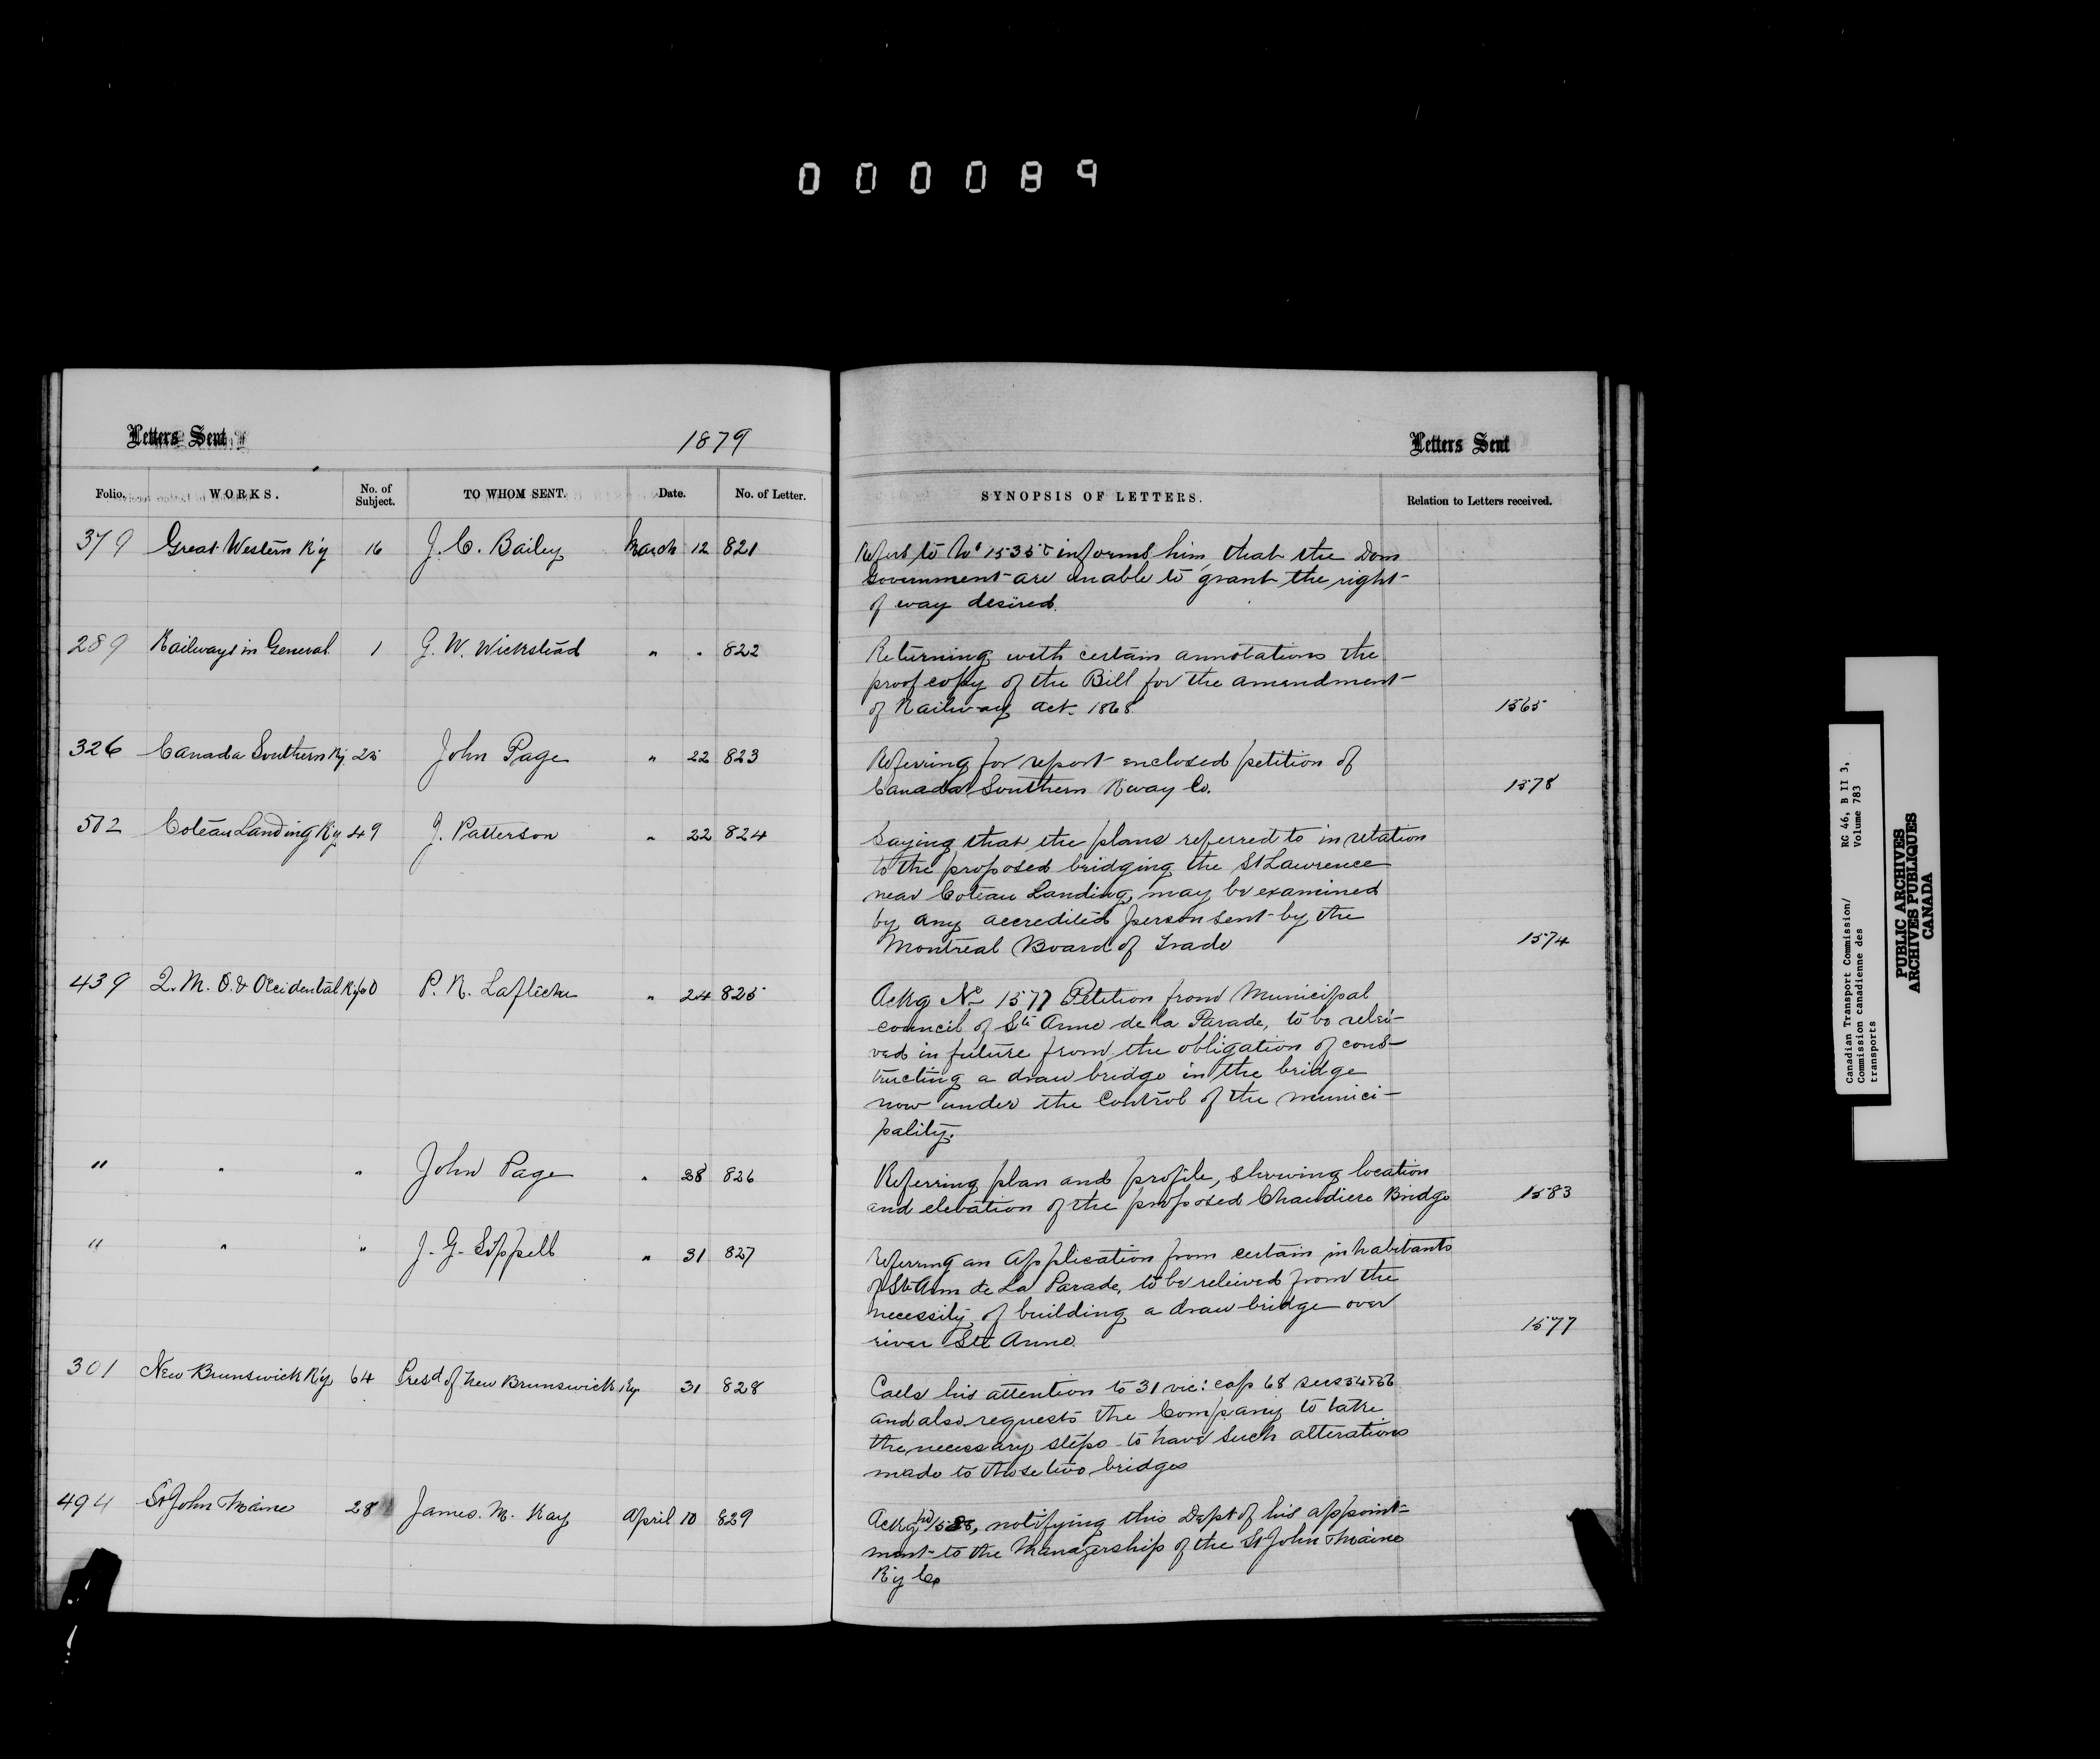 000089
Letters Sent
1879
Letters Sent
Folio. WORKS. No. of Subject. TO WHOM SENT. Date. No. of Letter. SYNOPSIS OF LETTERS. Relation to Letters received.
379 Great Western R'y 16 J. C. Bailey March 12 821
Refers to No 1535 & informs him, that the Dom
Government are unable to grant the right
of way desired.
289 Railways in General 1 G. W. Wickstead " " 822
Returning with certain annotations the
proof copy of the Bill for the amendment
of Railway act. 1868. 1565
326 Canada Southern Ry. 25 John Page " 22 823
Referring for report enclosed petition of
Canada Southern Rway Co. 1578
512 Coteau Landing Ry 49 J. Patterson " 22 824
Saying that the plans referred to in relation
to the proposed bridging the St Lawrence
near Coteau Landing, may be examined
by any accredited person sent by the
Montreal Board of Trade 1574
439 Q. M. O. & Occidental Ry 60 P. R. " 24 825
Ackg No 1577 Petition from Municipal
council of Ste Anne de la Parade, to be relei-
ved in future from the obligation of cons-
tructing a draw bridge in the bridge
now under the Control of the munici-
pality.
" " " John Page " 28 826
Referring plan and profile, shewing location
and elevation of the proposed Chaudiere Bridge 1583
" " " J. G. Sippell " 31 827
Referring an Application from certain inhabitants
of Ste Ann de La Parade, to be releived from the
necessity of building a draw bridge over
river Ste Anne. 1577
301 New Brunswick R'y 64 Presd of New Brunswick Ry. 31 828
Calls his attention to 31 vic: cap 68 secs
and also requests the Company to take
the necessary steps to have such alterations
made to those two bridges
494 St John Maine 28 James. M. Kay April 10 829
Ackg No 1588, notifying this Dept of his appoint-
ment to the Managership of the St John Maine
R'y Co
Canadian Transport Commission/ RG 46, B II 3,
Commission canadienne des Volume 783
transports
PUBLIC ARCHIVES
ARCHIVES PUBLIQUES
CANADA